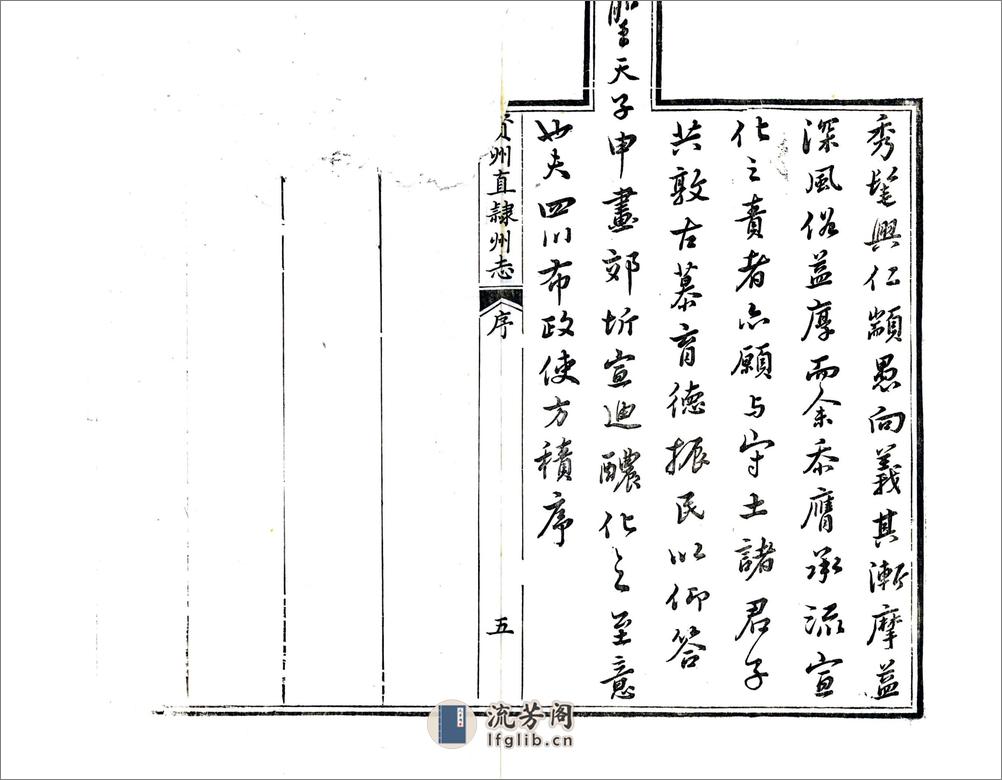 秀髦興仁顓愚向義其漸摩益
深風俗益厚而余忝膺承流宣
化之責者亦願与守土諸君子
共敦古慕育德振民以仰答
聖天子申畫郊圻宣迪醲化之至意
也夫四川布政使方積序
資州直隸州志
序
五
流芳阁
lfglib.cn